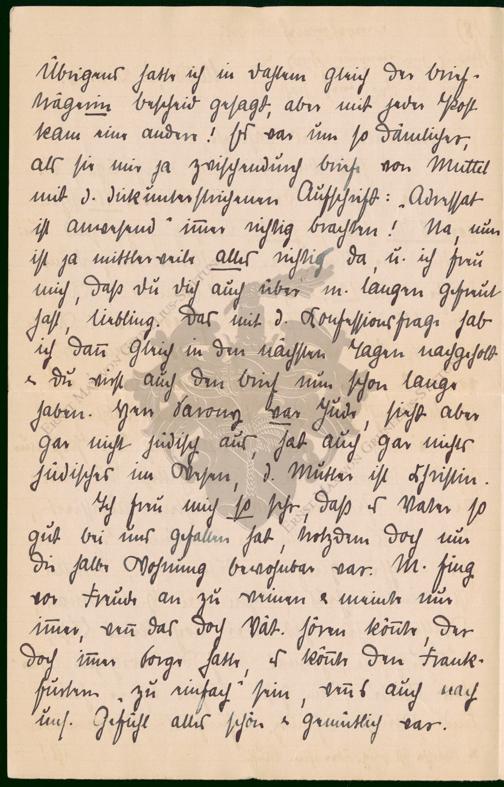 Übrigens hatte ich in Dahlem gleich der Brief-
trägerin bescheid gesagt, aber mit jeder Post
kam eine andere! Es war um so dämlicher,
als sie mir ja zwischendurch briefe von Muttel
mit d. dickunterstrichenen Aufschrift: „Adressat
ist anwesend" im̅er richtig brachten! Na, nun
ist ja mittlerweile alles richtig da, u. ich freu
mich, daß du dich auch über m. langen gefreut
hast, liebling. Das mit d. Konfessionsfrage hab
ich dan̅ gleich in den nächsten Tagen nachgeholt
& du wirst auch den brief nun schon lange
haben. Herr war Jude, sieht aber
gar nicht jüdisch aus, hat auch gar nichts
jüdisches im Wesen, d. Mutter ist Christin.
Ich freu mich so sehr, daß es Vater so
gut bei uns gefallen hat, trotzdem doch nur
die halbe Wohnung bewohnbar war. M. fing
vor Freude an zu weinen & meinte nur
im̅er, wen̅ das doch Vät. hören kön̅te, der
doch im̅er sorge hatte, es kön̅te den Frank-
furtern „zu einfach" sein, wen̅s auch nach
uns. Gefühl alles schön & gemütlich war.